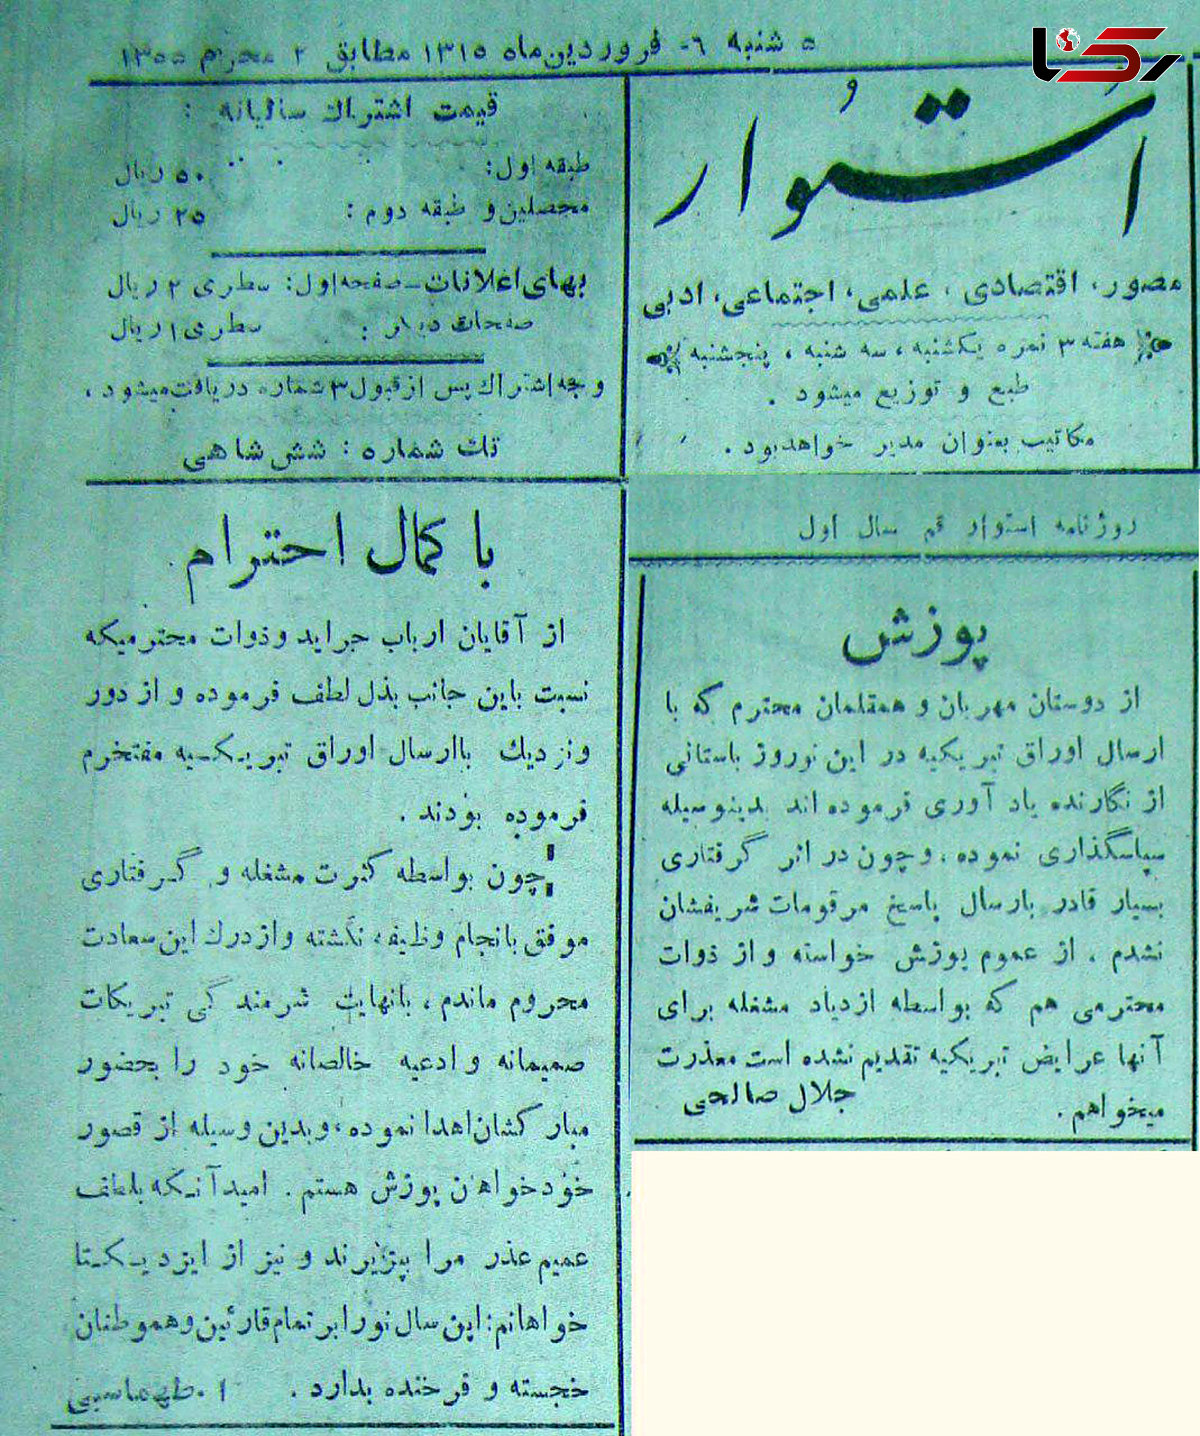 رکنا
۵ شنبه ۶- فروردین ماه ۱۳۱۵ مطابق ۲ محرم ۱۳۵۵
اُستُوار
مصور، اقتصادی، علمی، اجتماعی، ادبی
هفته ۳ نمره یکشنبه، سه شنبه، پنجشنبه
طبع و توزیع میشود.
مکاتیب بعنوان مدیر خواهدبود.
قیمت اشتراك سالیانه :
طبقه اول: ۵۰ ریال
محصلین و طبقه دوم: ۲۵ ریال
بهای اعلانات_صفحه اول: سطری ۲ ریال
صفحات دیگر : سطری ۱ ریال
وجه اشتراك پس از قبول ۳ شماره دریافت میشود،
تك شماره : شش شاهی
روزنامه استوار قم سال اول
پوزش
از دوستان مهربان و همقلمان محترم که با
ارسال اوراق تبریکیه در این نوروز باستانی
از نگارنده یاد آوری فرموده اند بدینوسیله
سپاسگذاری نموده، و چون در اثر گرفتاری
بسیار قادر بارسال پاسخ مرقومات شریفشان
نشدم . از عموم پوزش خواسته و از ذوات
محترمی هم که بواسطه ازدیاد مشغله برای
آنها عرایض تبریکیه تقدیم نشده است معذرت
میخواهم. جلال صالحی
با کمال احترام
از آقایان ارباب جراید و ذوات محترمیکه
نسبت باین جانب بذل لطف فرموده و از دور
ونزدیك باارسال اوراق تبریکیه مفتخرم
فرموده بودند .
چون بواسطه کثرت مشغله و گرفتاری
موفق بانجام وظیفه نگشته و از درك این سعادت
محروم ماندم، بانهایت شرمندگی تبریکات
صمیمانه و ادعیه خالصانه خود را بحضور
مبارکشان اهدا نموده، و بدین وسیله از قصور
خود خواهان پوزش هستم . امید آنکه بلطف
عمیم عذر مرا پذیرند و نیز از ایزد یکتا
خواهانم: این سال نورا بر تمام قارئین و هموطنان
خجسته و فرخنده بدارد . ا . طهماسبی